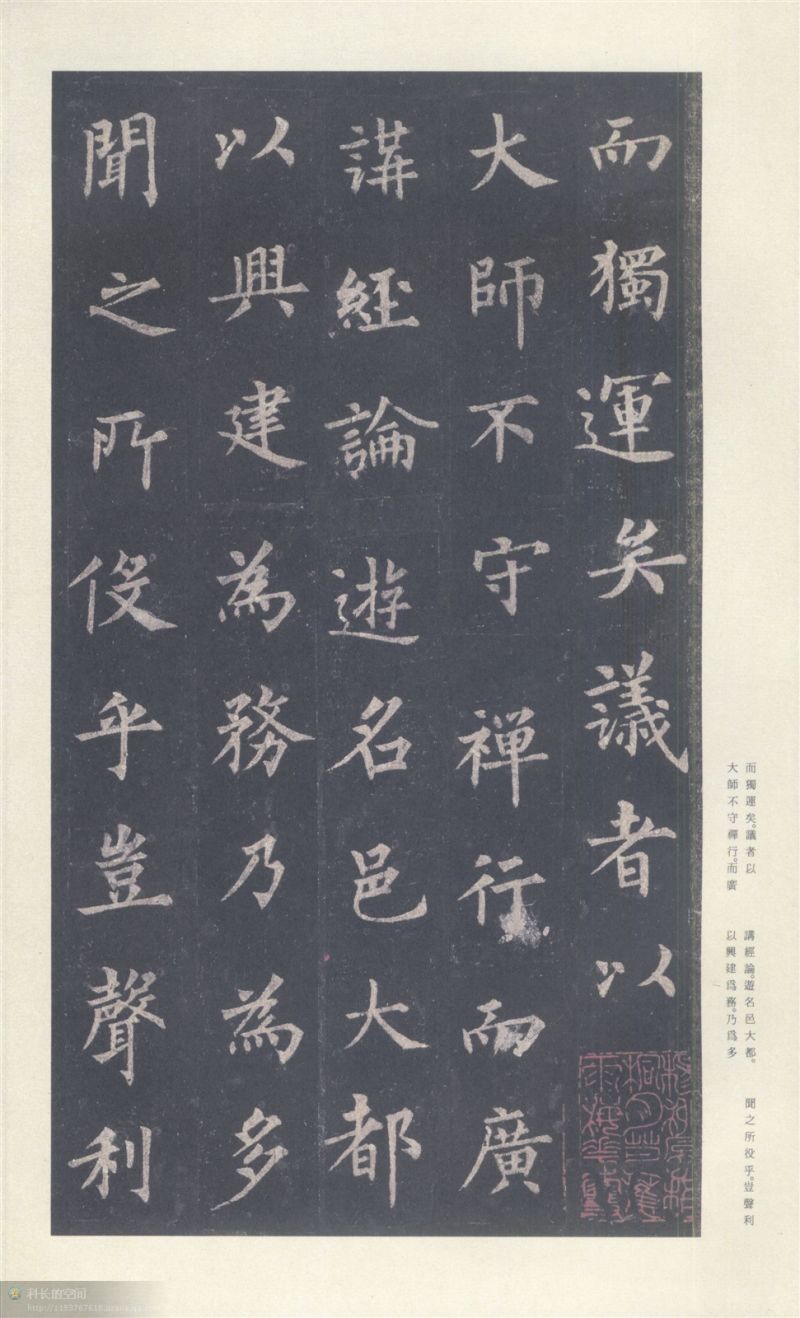 而獨運矣議者以
大師不守禅行而廣
講経論遊名邑大都
以興建為務乃為多
聞之所伇乎豈聲利
而獨運矣。議者以
大師不守禪行。而廣
講經論。遊名邑大都。
以興建爲務。乃爲多
聞之所役乎。豈聲利
科长的空间